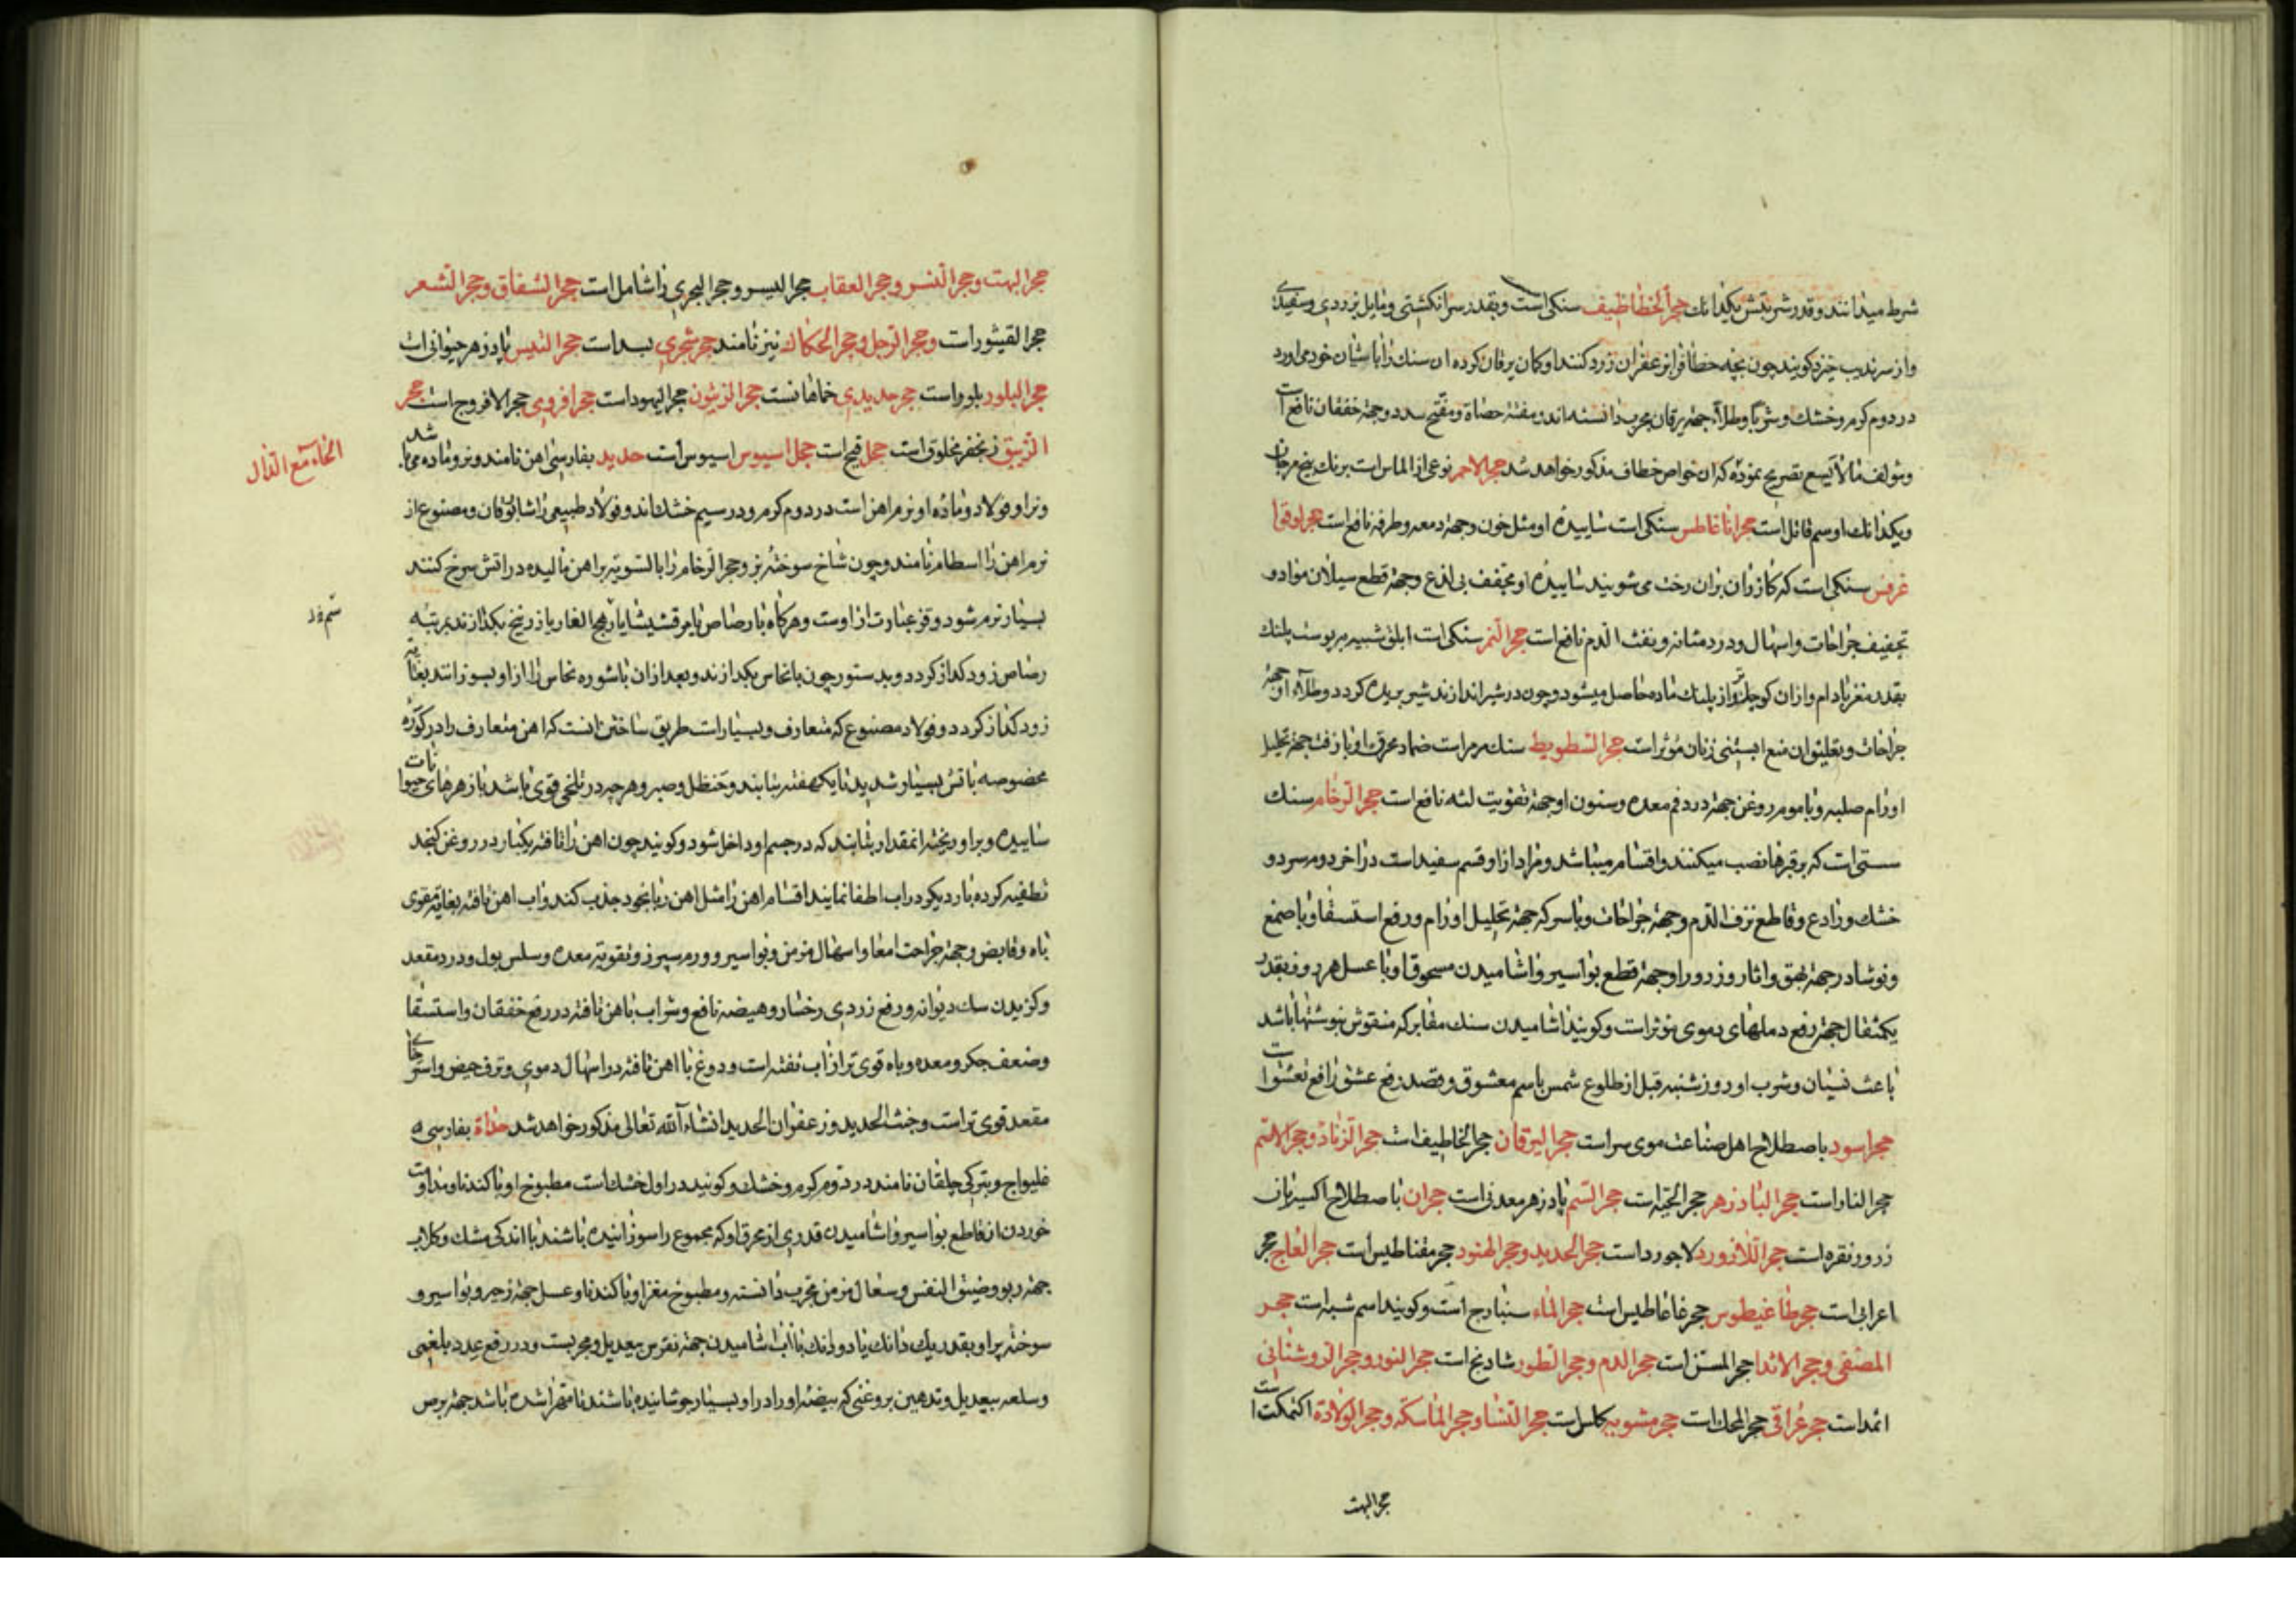 شرط میدانند و قدر شربتش یکدانك حجر الخطاطیف سنکی است و بقدر سر انکشتی و مایل بزردی و سفیدی
و از سرندیب خیزد کویند چون بچه خطاف را بزعفران زرد کنند او کمان یرقان کرده ان سنك را باشیان خود می اورد
در دوم کرم و خشك و شربا و طلاءً جهة یرقان مجرب دانسته اند و مفتت حصاة و مفتح سدد و جهة خفقان نافع است
و مؤلف مالایسع تصریح نموده که ان خواص خطاف مذکور خواهد شد حجر الاحمر نوعی از الماس است برنك بیخ مرجان
و یکدانك او سم قاتل است حجر اناغاطس سنکی است ساییدهٔ او مثل خون و جهة دمعه و طرفه نافع است حجر اوقوا
غرفس سنکی است که کازران بران رخت می شویند ساییدهٔ او مجفف بی لذع و جهة قطع سیلان مواد و
تجفیف جراحات و اسهال و درد مثانه و نفث الدم نافع است حجر النمر سنکی است ابلق شبیه بر پوست پلنك
بقدر مغز بادام و ازان کوچکتر و از پلنك ماده حاصل میشود و چون در شیر اندازند شیر بریده کردد و طلاء او جهة
جراحات و تعلیق ان منع ابستنی زنان مؤثر است حجر السطویط سنك مرمر است ضماد محرق او با زفت جهة تحلیل
اورام صلبه و با موم روغن جهة درد فم معده و سنون او جهة تقویت لثه نافع است حجر الرخام سنك
سستی است که بر قبرها نصب میکنند و اقسام میباشد و مراد از او قسم سفید است در اخر دوم سرد و
خشك و رادع و قاطع نزف الدم و جهة جراحات و با سرکه جهة تحلیل اورام و رفع استسقا و با صمغ
و نوشادر جهة بهق و اثار و زرور او جهة قطع بواسیر و اشامیدن مسحوق او با عسل هر روز بقدر
یکمثقال جهة رفع دملهای دموی مؤثر است و کویند اشامیدن سنك مقابر که منقوش بنوشتها باشد
باعث نسیان و شرب او روز شنبه قبل از طلوع شمس باسم معشوق و بقصد رفع عشق رافع تعشق است
حجر اسود باصطلاح اهل صناعت موی سر است حجر الیرقان حجر الخاطیف است حجر الزناد و حجر الاصم
حجر النار است حجر البادزهر حجر الحیة است حجر السم پادزهر معدنی است حجران باصطلاح اکسیریان
زر و نقره است حجر اللازورد لاجورد است حجر الحدید و حجر الهنود حجر مقناطیس است حجر العاج حجر
اعرابی است حجر طاغیطوس حجر غاغاطیس است حجر الماء سنبارج است و کویند اسم شبه است حجر
المصفی و حجر الاندا حجر المسن است حجر الدم و حجر الطور شادنج است حجر النور و حجر الروشنائی
اثمد است حجر عراقی حجر المحك است حجر مشوبه کلس است حجر النسا و حجر الماسکه و حجر الولادة اکتمکت است
حجر البهت
حجر البهت و حجر النسر و حجر العقاب حجر الیسر و حجر البحری را شامل است حجر الشفاق و حجر الشعر
حجر القیشور است و حجر الرجل و حجر الحکاك نیز نامند حجر شجری بسد است حجر التیس پادزهر حیوانی است
حجر البلور بلور است حجر حدیدی خماهانست حجر الزیتون حجر الیهود است حجر افروی حجر الافروج است حجر
الزیبق زنجفر مخلوق است حجل قبج است حجل اسیوس اسیوس است حدید بفارسی اهن نامند و نر و ماده می باشد
الحاء مع الدال
و نر او فولاد و ماده او نرم اهن است در دوم کرم و در سیم خشك اند و فولاد طبیعی را شابورقان و مصنوع از
نرم اهن را اسطام نامند و چون شاخ سوختهٔ بز و حجر الرخام را بالسویه بر اهن مالیده در اتش سرخ کنند
بسیار نرم شود و قز عبارت از اوست و هرکاه با رصاص یا مرقشیشا یا رهج الغار یا زرنیخ بکدازند بمرتبه
رصاص زود کداز کردد و بدستور چون با نحاس بکدازند و بعد ازان با شوره نحاس را از او بسوزانند بغایه
زود کداز کردد و فولاد مصنوع که متعارف و بسیار است طریق ساختن انست که اهن متعارف را در کورهٔ
مخصوصه باتش بسیار شدید تا یکهفته بتابند و حنظل و صبر و هرچه در تلخی قوی باشد با زهرهای حیوانات
ساییده و بر او ریخته انمقدار بتابند که در جسم او داخل شود و کویند چون اهن را تافته یکبار در روغن کنجد
تطفیه کرده بار دیکر در اب اطفا نمایند اقسام اهن را مثل اهن ربا بخود جذب کند و اب اهن تافته بغایه مقوی
باه و قابض و جهة جراحت امعا و اسهال مزمن و بواسیر و ورم سپرز و تقویة معده و سلس بول و درد مقعد
و کزیدن سك دیوانه و رفع زردی رخسار و هیضه نافع و شراب باهن تافته در رفع خفقان و استسقا
و ضعف جکر و معده و باه قوی تر از اب تفته است و دوغ با اهن تافته در اسهال دموی و نزف حیض و استرخای
مقعد قوی تر است و خبث الحدید و زعفران الحدید انشاء الله تعالی مذکور خواهد شد حداة بفارسی
غلیواج و بترکی چلقان نامند در دوم کرم و خشك و کویند در اول خشك است مطبوخ او با کندنا و مداومت
خوردن ان قاطع بواسیر و اشامیدن قدری از محرق او که مجموع را سوزانیده باشند با اندکی مشك و کلاب
جهة ربو و ضیق النفس و سعال مزمن مجرب دانسته و مطبوخ مغز او با کندنا و عسل جهة زحیر و بواسیر و
سوختهٔ پر او بقدر یك دانك یا دو دانك با اب اشامیدن جهة نقرس بیعدیل و مجربست و در رفع غدد بلغمی
و سلعه بیعدیل و تدهین بروغنی که بیضهٔ او را در او بسیار جوشانیده باشند تا متهرا شده باشد جهة برص